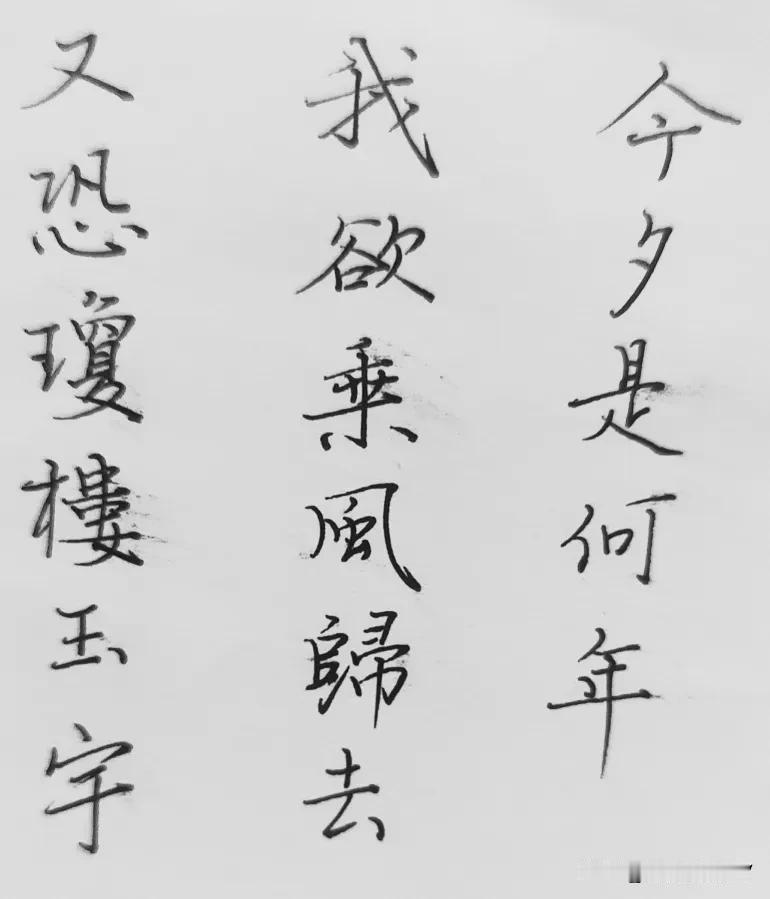 今夕是何年
我欲乗風歸去
又恐瓊樓玉宇